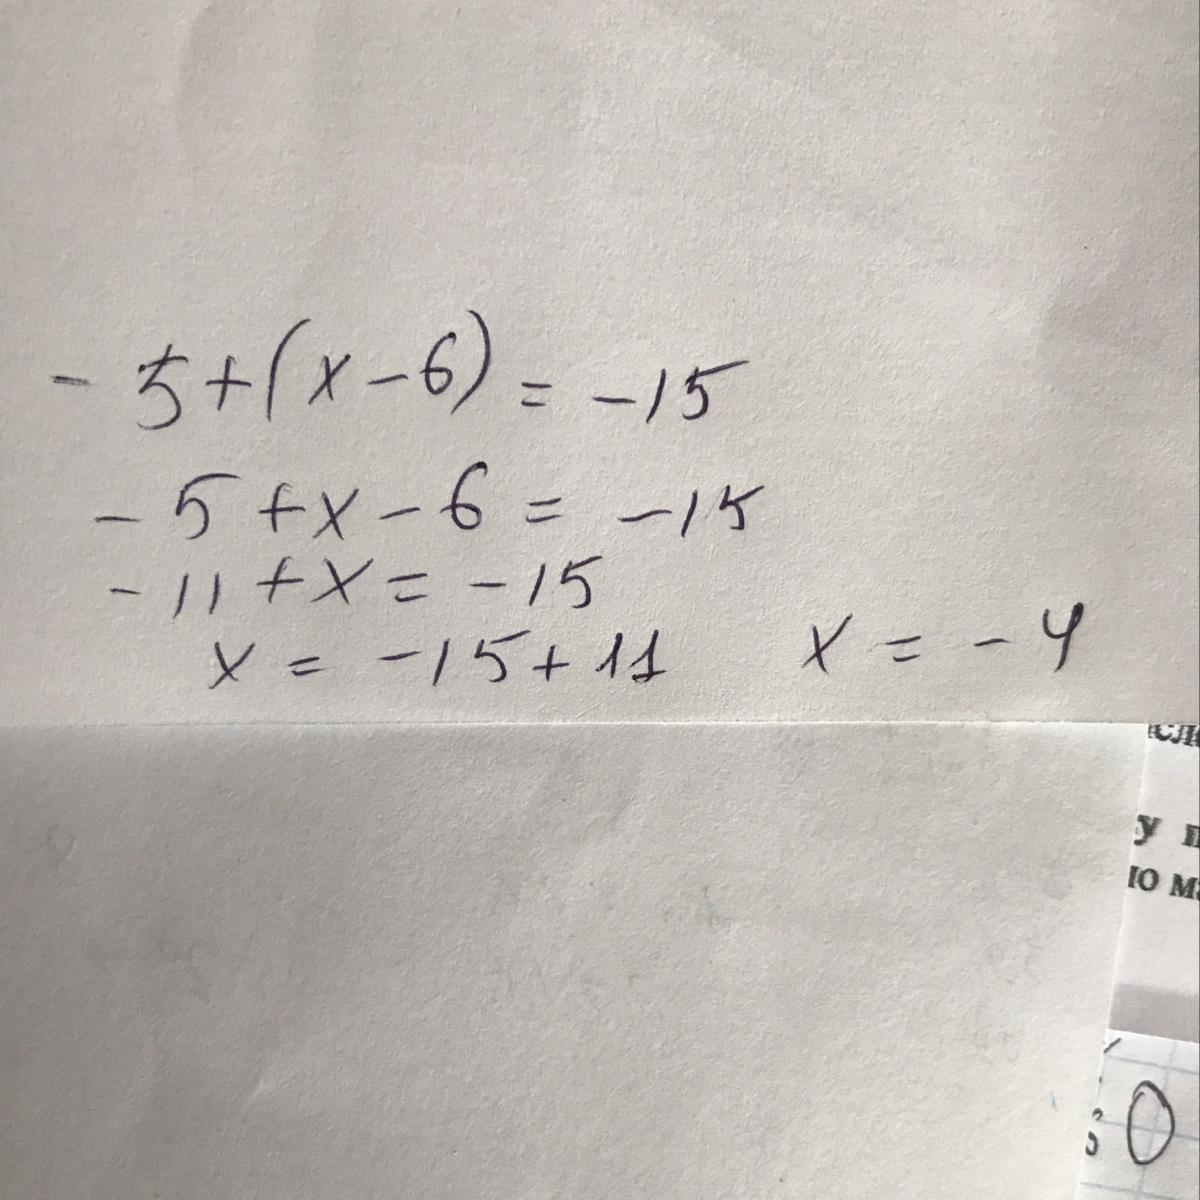 - 5+(x-6) = -15
- 5 +x-6 = -15
-11 +x= -15
x = -15+11 x = -4
у
ю
0